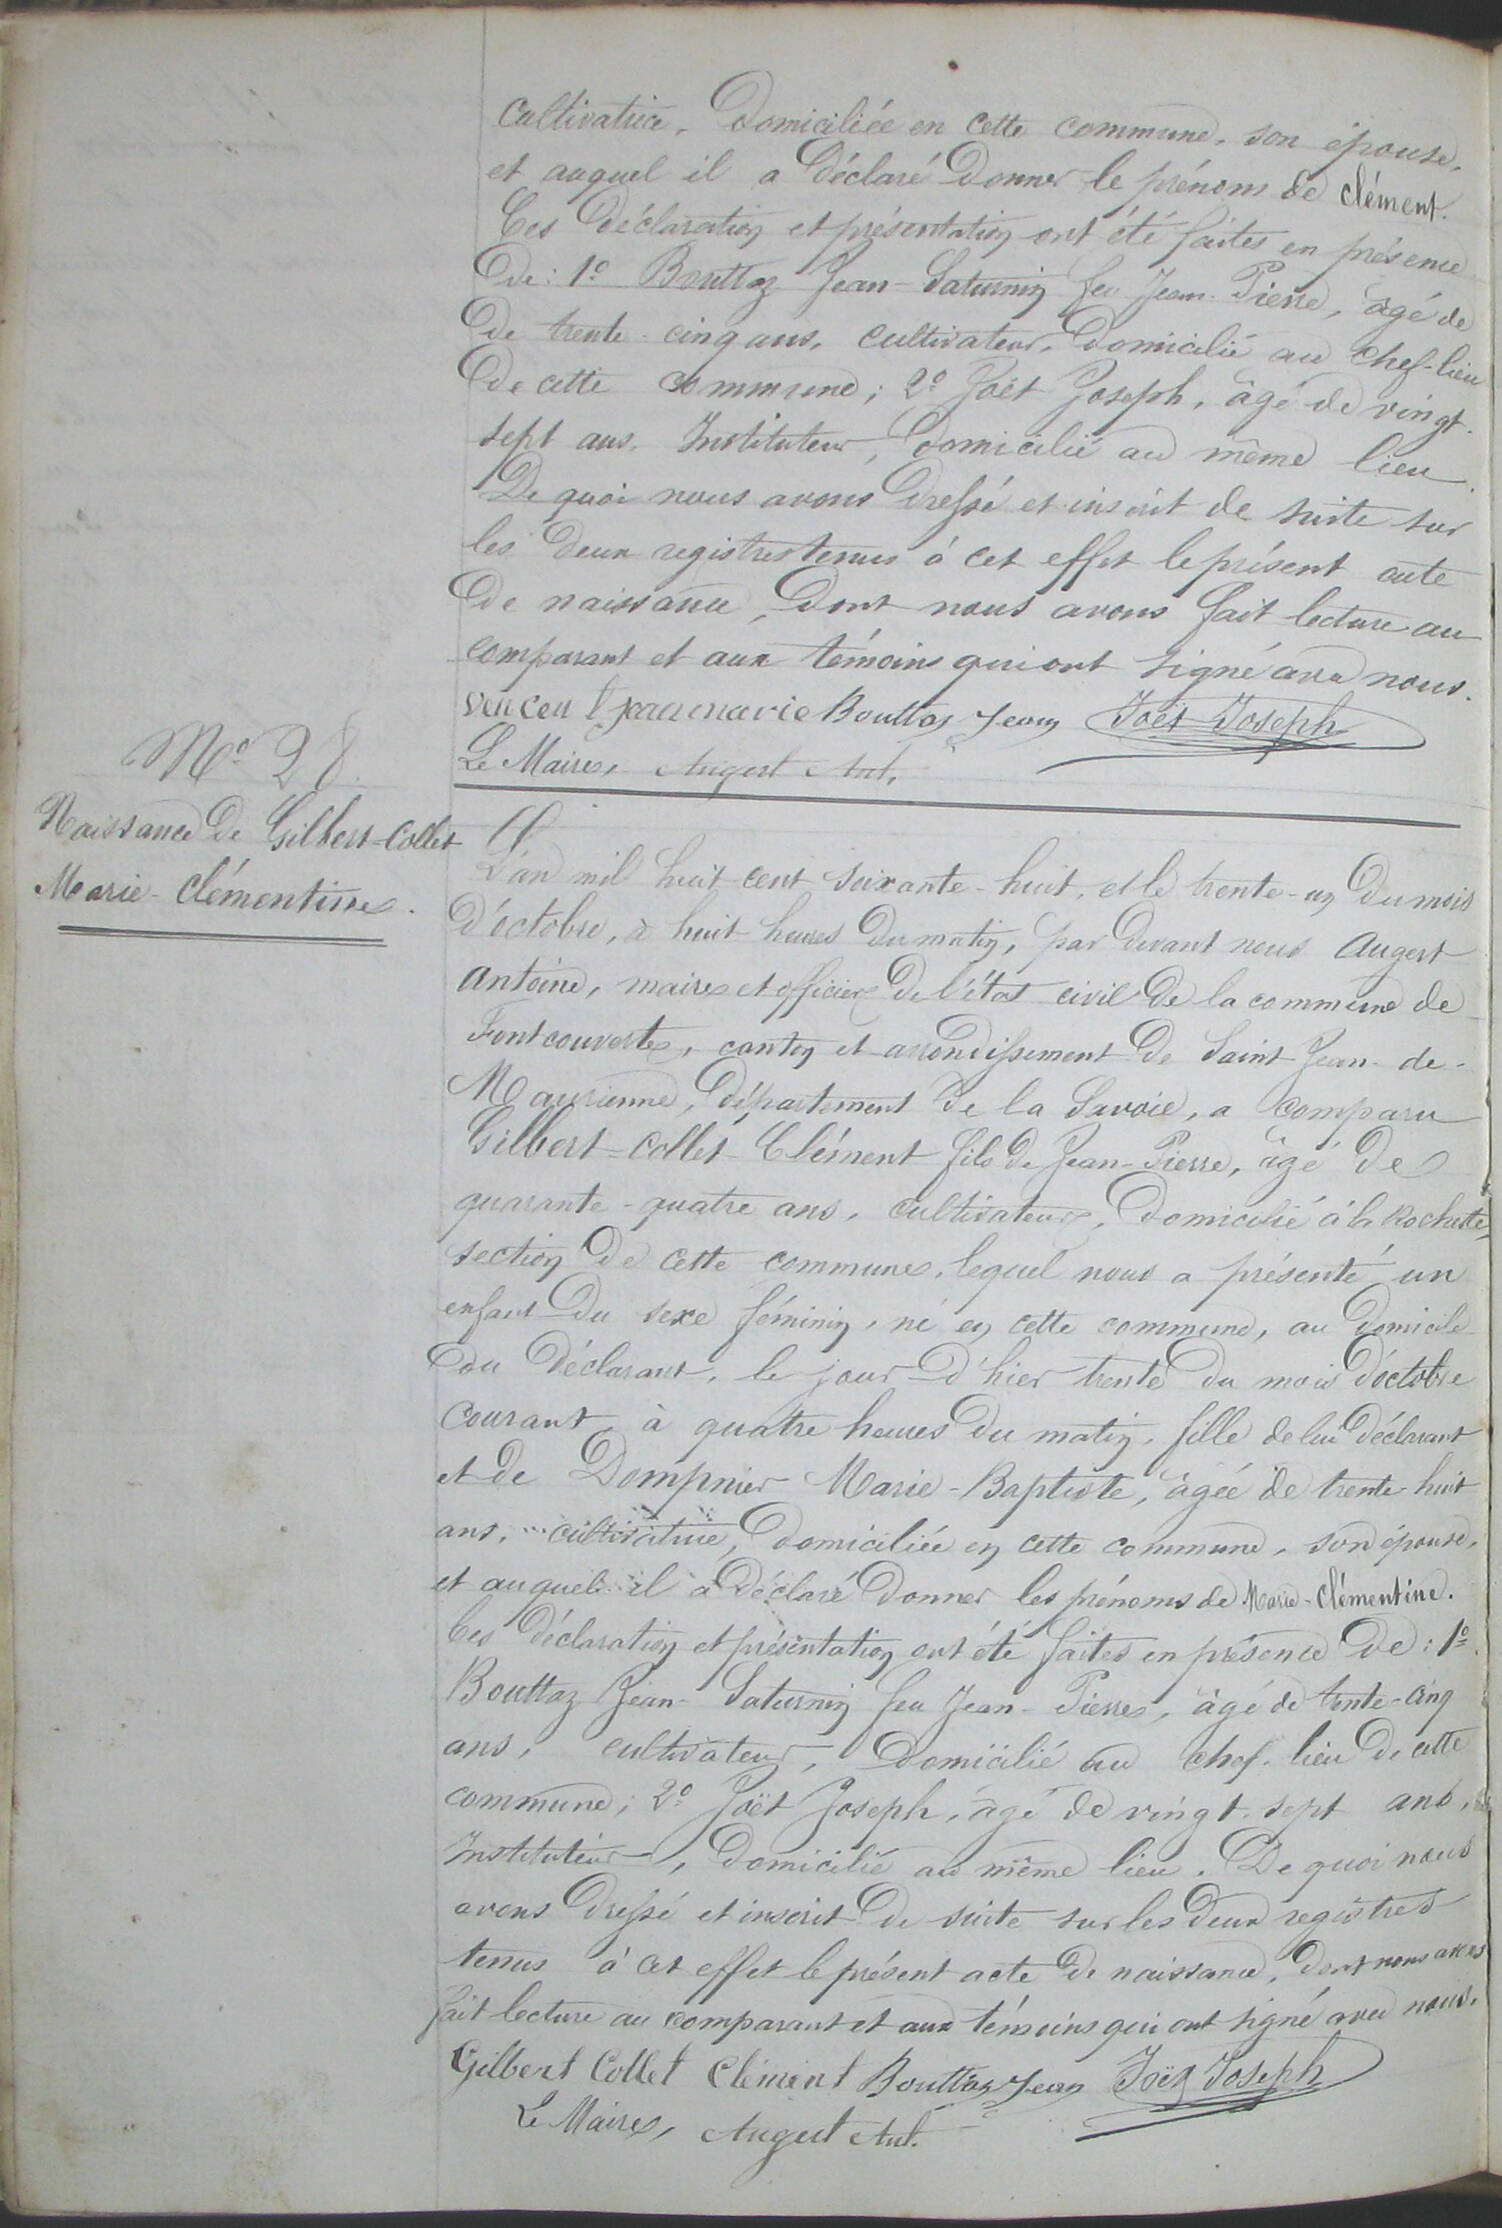 cultivatrice, domiciliée en cette commune, son épouse,
et auquel il a déclaré donner le prénom de clément.
Ces déclaration et présentation ont été faites en présence
de : 1º Bouttaz Jean-Saturnin feu Jean-Pierre, âgé de
de trente-cinq ans, cultivateur, domicilié au chef-lieu
de cette commune ; 2º Joët Joseph, âgé de vingt-
sept ans, Instituteur, domicilié au même lieu.
De quoi nous avons dressé et inscrit de suite sur
les deux registres tenus à cet effet le présent acte
de naissance, dont nous avons fait lecture au
comparant et aux témoins qui ont signé avec nous.
jeanmarie Bouttaz Jean Joët Joseph
Le Maire, Augert Ant.
Nº 28.
Naissance de Gilbert-Collet
Marie-Clémentine.
L'an mil huit cent soixante-huit, et le trente-un du mois
d'octobre, à huit heures du matin, par devant nous Augert
Antoine, maire et officier de l'état civil de la commune de
Fontcouverte, canton et arrondissement de Saint-Jean-de-
Maurienne, département de la Savoie, a comparu
Gilbert-Collet Clément fils de Jean-Pierre, âgé de
quarante-quatre ans, cultivateur, domicilié à la Rochette,
section de cette commune, lequel nous a présenté un
enfant du sexe féminin, né en cette commune, au domicile
du déclarant, le jour d'hier trente du mois d'octobre
courant, à quatre heures du matin, fille de lui déclarant
et de Dompnier Marie-Baptiste, âgée de trente-huit
ans, cultivatrice, domiciliée en cette commune, son épouse,
et auquel il a déclaré donner les prénoms de Marie-Clémentine.
Ces déclaration et présentation ont été faites en présence de : 1º
Bouttaz Jean-Saturnin feu Jean-Pierre, âgé de trente-cinq
ans, cultivateur, domicilié au chef-lieu de cette
commune ; 2º Joët Joseph, âgé de vingt-sept ans,
Instituteur, domicilié au même lieu. De quoi nous
avons dressé et inscrit de suite sur les deux registres
tenus à cet effet le présent acte de naissance, dont nous avons
fait lecture au comparant et aux témoins qui ont signé avec nous.
Gilbert Collet Clément Bouttaz Jean Joët Joseph
Le Maire, Augert Ant.